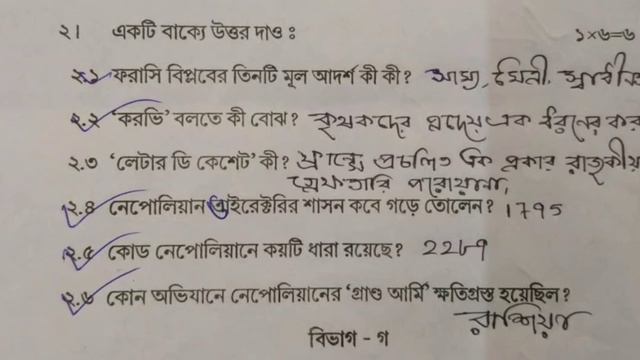 ২। একটি বাক্যে উত্তর দাও : ১×৬=৬
২.১ ফরাসি বিপ্লবের তিনটি মূল আদর্শ কী কী? সাম্য, মৈত্রী, স্বাধীন
২.২ 'করভি' বলতে কী বোঝ? কৃষকদের প্রদেয় এক ধরনের কর
২.৩ 'লেটার ডি কেশেট' কী? ফ্রান্সে প্রচলিত এক প্রকার রাজকীয়
গ্রেফতারি পরোয়ানা,
২.৪ নেপোলিয়ান ডাইরেক্টরির শাসন কবে গড়ে তোলেন? 1795
২.৫ কোড নেপোলিয়ানে কয়টি ধারা রয়েছে? 2287
২.৬ কোন অভিযানে নেপোলিয়ানের 'গ্রাণ্ড আর্মি' ক্ষতিগ্রস্ত হয়েছিল?
রাশিয়ায়
বিভাগ - গ